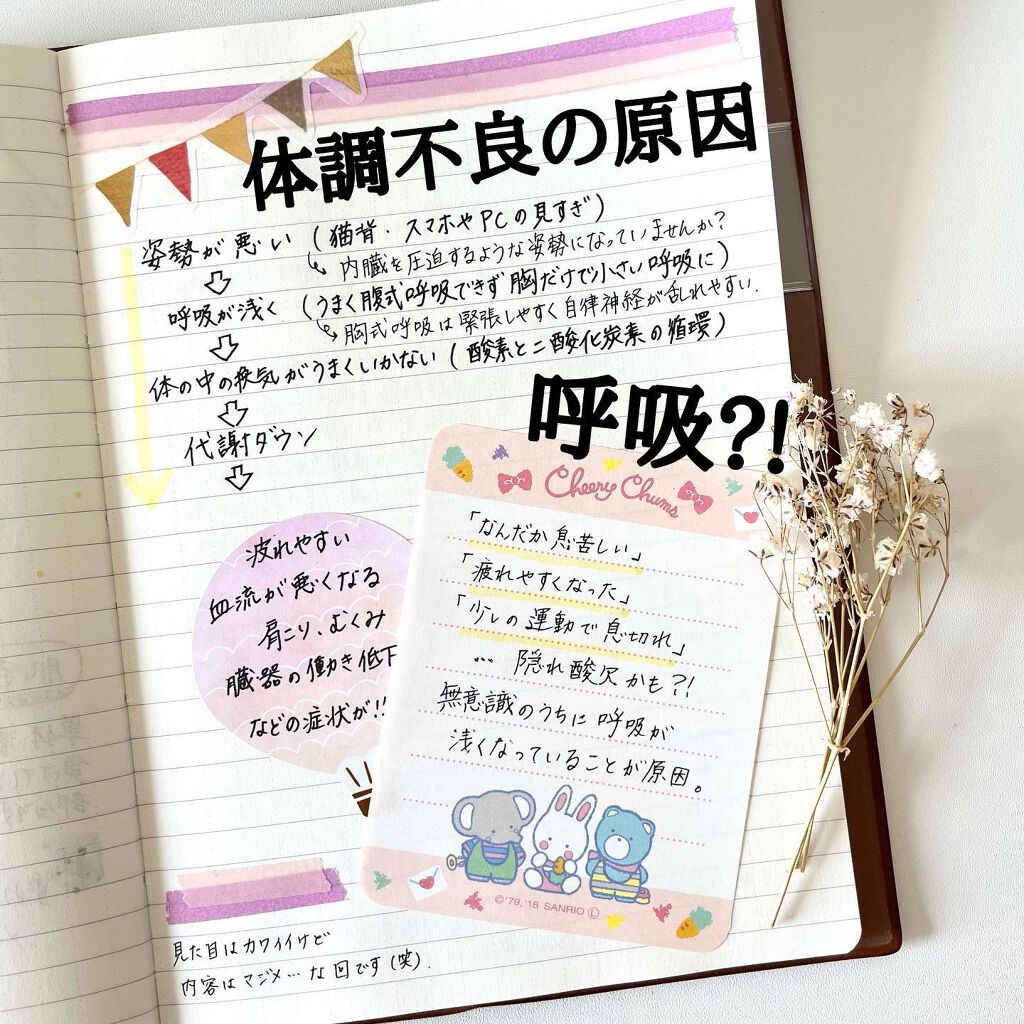 体調不良の原因
姿勢が悪い (猫背・スマホやPCの見すぎ)
↳ 内臓を圧迫するような姿勢になっていませんか?
⇩
呼吸が浅く (うまく腹式呼吸できず胸だけで小さい呼吸に)
↳ 胸式呼吸は緊張しやすく自律神経が乱れやすい.
⇩
体の中の換気がうまくいかない (酸素と二酸化炭素の循環)
⇩
代謝ダウン
⇩
呼吸?!
疲れやすい
血流が悪くなる
肩こり、むくみ
臓器の働き低下
などの症状が!!
Cheery Chums
「なんだか息苦しい」
「疲れやすくなった」
「少しの運動で息切れ」
… 隠れ酸欠かも?!
無意識のうちに呼吸が
浅くなっていることが原因。
©'79,'18 SANRIO Ⓛ
見た目はカワイイけど
内容はマジメ…な回です(笑).